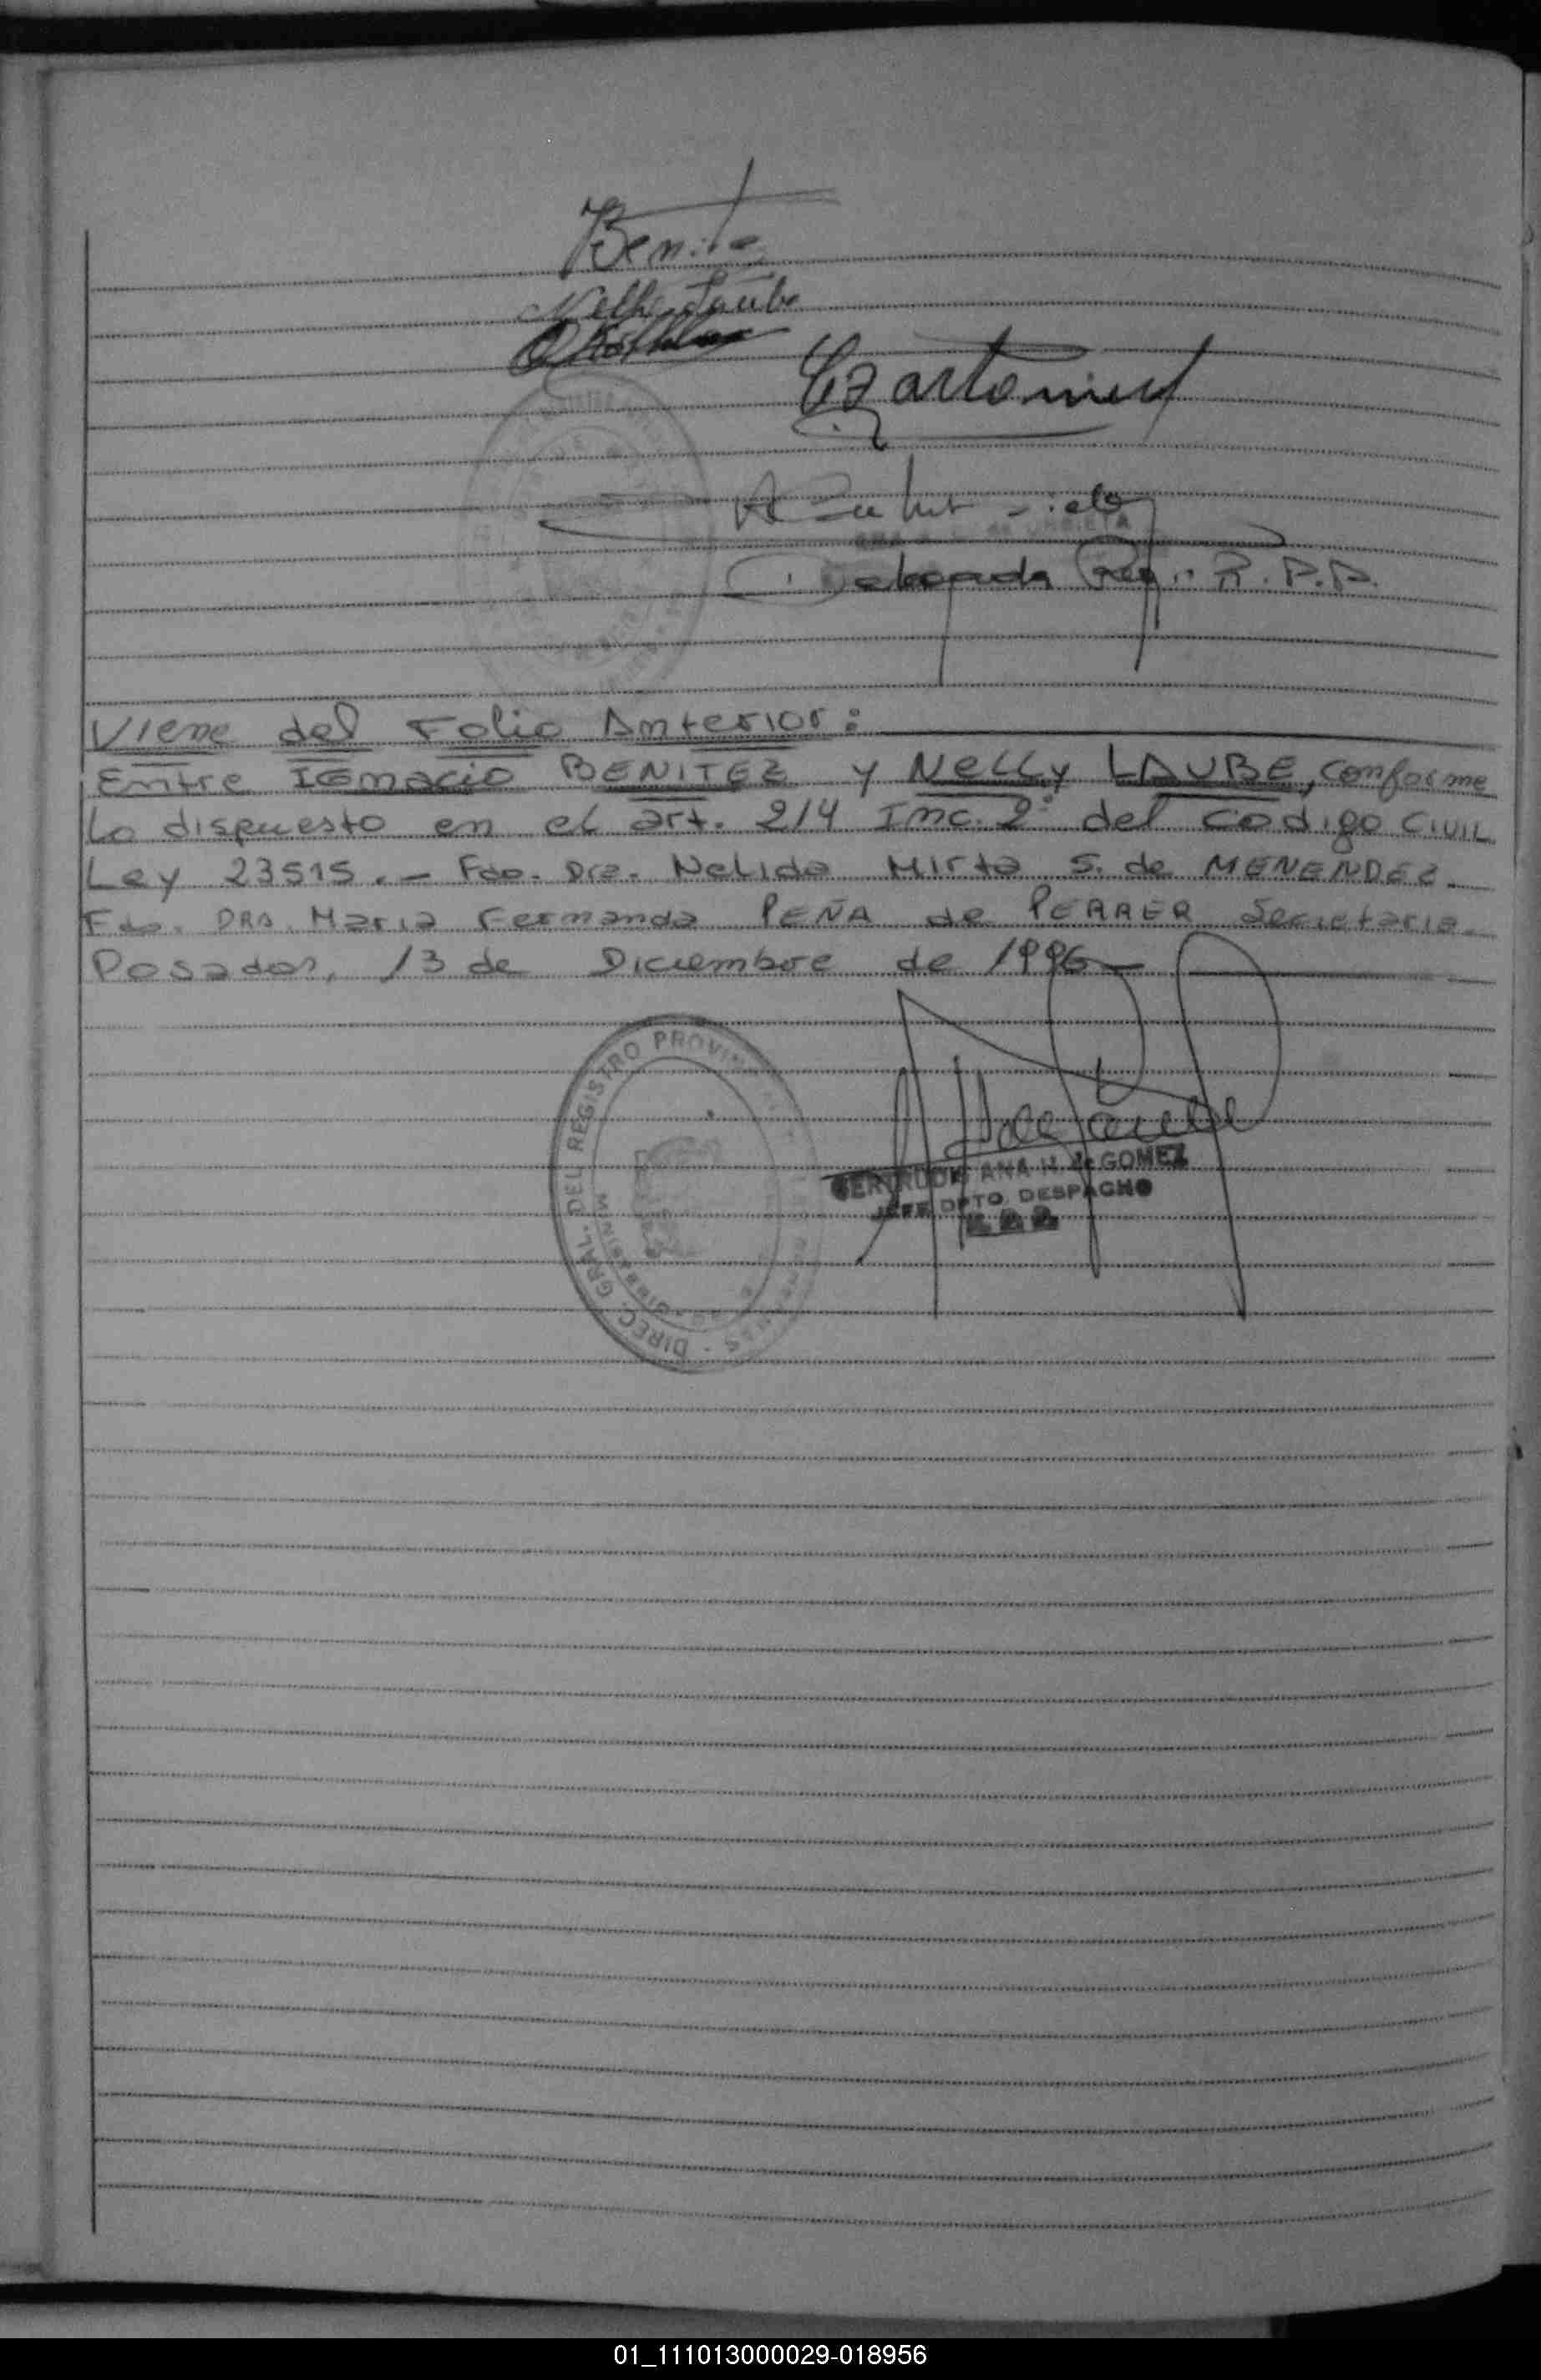 Benitez
Nelly Laube
Delegada Reg. R.P.P.
Viene del Folio Anterior:
Entre IGNacio BENITEZ y NeLLy LAUBE, conforme
Lo dispuesto en el art. 214 Inc. 2º del codigo CIVIL
Ley 23515.- Fdo. Dra. NeLida Mirta S. de MENENDEZ
Fdo. DRA. Maria Fernanda PEÑA de PERRER Secretaria.
Posadas, 13 de Diciembre de 1996
DIREC. GRAL. DEL REGISTRO PROVIN
GERTRUDIS ANA H. de GOMEZ
JEFE DPTO. DESPACHO
01_111013000029-018956